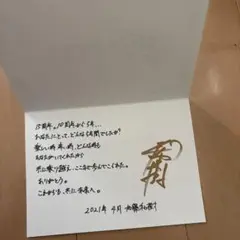 15周年。10周年から5年...
あなたにとって、どんな5年間でしたか?
楽しい時、辛い時、どんな時も
あなたがいてくれたから
共に乗り越え、ここまで歩んでこられた。
ありがとう。
これからも、共に未来へ。
2021年 4月